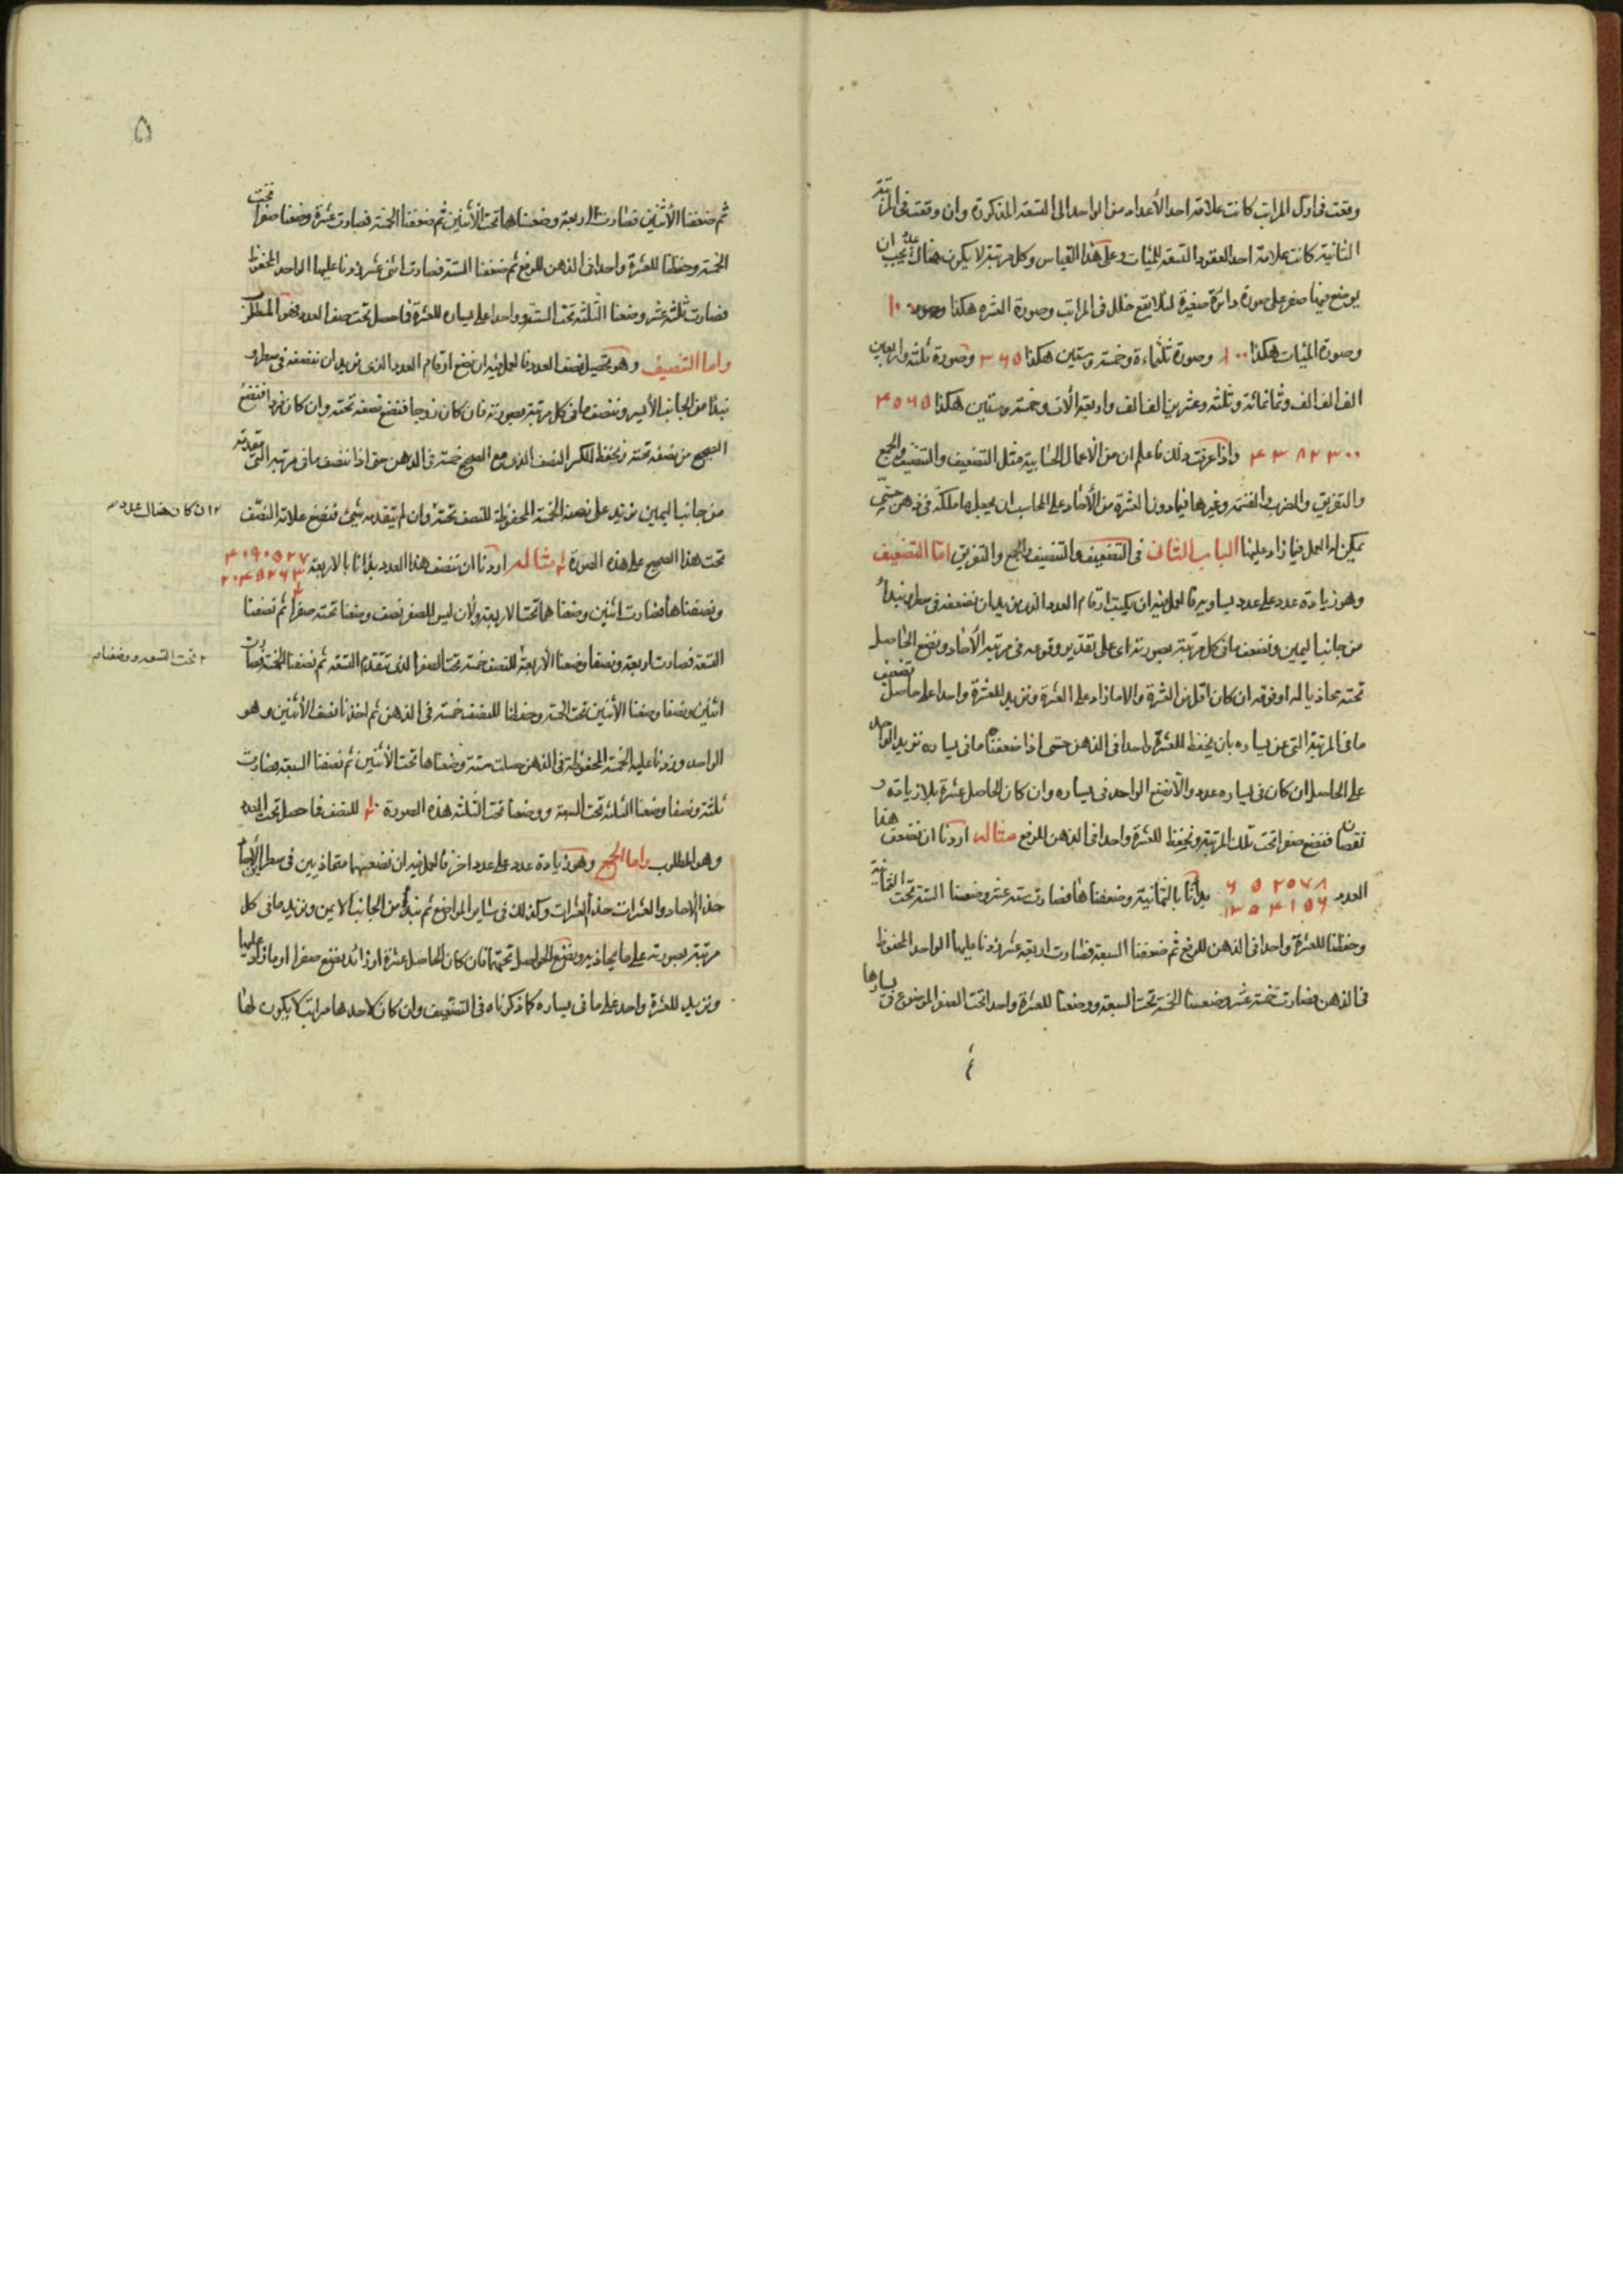 وقعت فى اول المراتب كانت علامة احد الأعداد من الواحد الى التسعة المذكورة وان وقعت فى المرتبة
الثانية كانت علامة احد العقود التسعة للمئات وعلى هذا القياس وكل مرتبة لا يكون هناك عدد يجب ان
يوضع فيها صفر على صورة دائرة صغيرة لئلا يقع خلل فى المراتب وصورة العشرة هكذا ١٠
وصورة المئات هكذا ١٠٠ وصورة ثلثماءة وخمسة وستين هكذا ٣٦٥ وصورة ثلثة واربعين
الف الف الف وثمانمائة وثلثة وعشرين الف الف واربعة الآف وخمسة وستين هكذا ٤٠٦٥
٤٣٨٢٣٠٠ واذا عرفت ذلك فاعلم ان من الاعمال الحسابية مثل التضعيف والتنصيف والجمع
والتفريق والضرب والقسمة وغيرها فيما دون العشرة من الأحاد على المحاسب ان يجعلها ملكة فى ذهن حتى
يمكن له العمل فيما زاد عليها الباب الثانى فى التضعيف والتنصيف والجمع والتفريق امّا التضعيف
وهو زيادة عدد على عدد يساويه فالعمل فيه ان يكتب ارقام العدد الذى نريد ان نضعفه فى سطر ونبدأ
من جانب اليمين ونضعف ما فى كل مرتبة بصورته اى على تقدير وقوعه فى مرتبة الأحاد ونضع الحاصل
تحته محاذيا له او فوقه ان كان اقل من العشرة والا ما زاد على العشرة ونزيد للعشرة واحدا على حاصل تضعيف
ما فى المرتبة التى عن يساره بان يحفظ للعشرة واحدا فى الذهن حتى اذا ضعفنا ما فى يساره نزيد الواحد
على الحاصل ان كان فى يساره عدد والّا نضع الواحد فى يساره وان كان الحاصل عشرة بلا زيادة و
نقصان فنضع صفرا تحت تلك المرتبة ونحفظ للعشرة واحدا فى الذهن للرفع مثاله اردنا ان نضعف هذا
العدد ٦٥٢٠٧٨ ١٣٠٤١٥٦ بدأنا بالثمانية وضعفناها فصارت ستة عشر وضعنا الستة تحت الثمانية
وحفظنا للعشرة واحدا فى الذهن للرفع ثم ضعفنا السبعة فصارت اربعة عشر زدنا عليها الواحد المحفوظ
فى الذهن فصارت خمسة عشر وضعنا الخمسة تحت السبعة ووضعنا للعشرة واحدا تحت الصفر الموضوع فى يسارها
٥
ثم ضعفنا الأثنين فصارت اربعة وضعناها تحت الأثنين ثم ضعفنا الخمسة فصارت عشرة وضعنا صفرا تحت
الخمسة وحفظنا للعشرة واحدا فى الذهن للرفع ثم ضعفنا الستة فصارت اثنى عشر زدنا عليها الواحد المحفوظ
فصارت ثلثة عشر وضعنا الثلثة تحت الستة وواحدا على يساره للعشرة فما حصل تحت صف العدد فهو المطلوب
واما التنصيف وهو تحصيل نصف العدد فالعمل فيه ان نضع ارقام العدد الذى نريد ان ننصفه فى سطر و
نبدأ من الجانب الأيسر وننصف ما فى كل مرتبة بصورته فان كان زوجا فنضع نصفه تحته وان كان فردا فنضع
الصحيح من نصفه تحته ونحفظ للكسر النصف الذى مع الصحيح خمسة فى الذهن حتى اذا ننصف ما فى مرتبة التى تقدمته
من جانب اليمين نزيد على نصفه الخمسة المحفوظة للنصف تحته وان لم يتقدمه شئ فنضع علامة النصف
ان كان هناك عدد
تحت هذا الصحيح على هذه الصورة مثاله اردنا ان ننصف هذا العدد بدأنا بالاربعة ٤٠٩٠٥٢٧ ٢٠٤٥٢٦٣
ونصفناها فصارت اثنين وضعناهما تحت الاربعة ولأن ليس للصفر نصف وضعنا تحته صفرا ثم نصفنا
التسعة فصارت اربعة ونصفا وضعنا الأربعة للنصف خمسة تحت الصفر الذى تتقدم التسعة ثم نصفنا الخمسة فصارت
تحت التسعة ووضعنا
اثنين ونصفا وضعنا الأثنين تحت الخمسة وحفظنا للنصف خمسة فى الذهن ثم اخذنا نصف الأثنين وهو
الواحد وزدنا عليه الخمسة المحفوظة فى الذهن حصلت ستة وضعناها تحت الأثنين ثم نصفنا السبعة فصارت
ثلثة ونصفا وضعنا الثلثة تحت السبعة ووضعنا تحت الثلثة هذه الصورة للنصف فما حصل تحت العدد
وهو المطلوب واما الجمع وهو زيادة عدد على عدد اخر فالعمل فيه ان نضعهما متحاذيين فى سطرين الأحاد
حذاء الأحاد والعشرات حذاء العشرات وكذلك فى سائر المواضع ثم نبدأ من الجانب الايمن ونزيد ما فى كل
مرتبة بصورته على ما يحاذيه ونضع الحواصل تحتهما فان كان الحاصل عشرة او زائد نضع صفرا او ما زاد عليها
ونزيد للعشرة واحد على ما فى يساره كما ذكرناه فى التضعيف وان كان لاحدها مراتب لا يكون لها